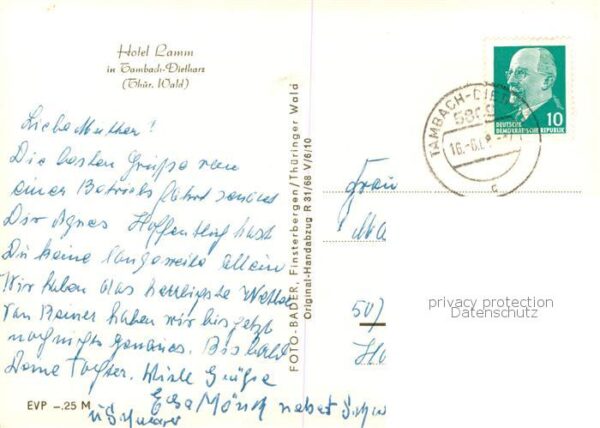 Hotel Lamm
in Tambach-Dietharz
(Thür. Wald)
Liebe Mutter!
Die besten Grüße von
einer Betriebsfahrt sendet
Dir Agnes Hoffentlich hast
Du keine Langeweile allein
Wir haben das herrlichste Wetter
Von Rainer haben wir bis jetzt
noch nichts genaues. Bis bald
Deine Tochter. Viele Grüße
nebst
EVP –.25 M
FOTO-BADER, Finsterbergen/Thüringer Wald
Original-Handabzug R 31/68 V/6/10
TAMBACH-DIET
10
DEUTSCHE
DEMOKRATISCHE REPUBLIK
Frau
507
privacy protection
Datenschutz